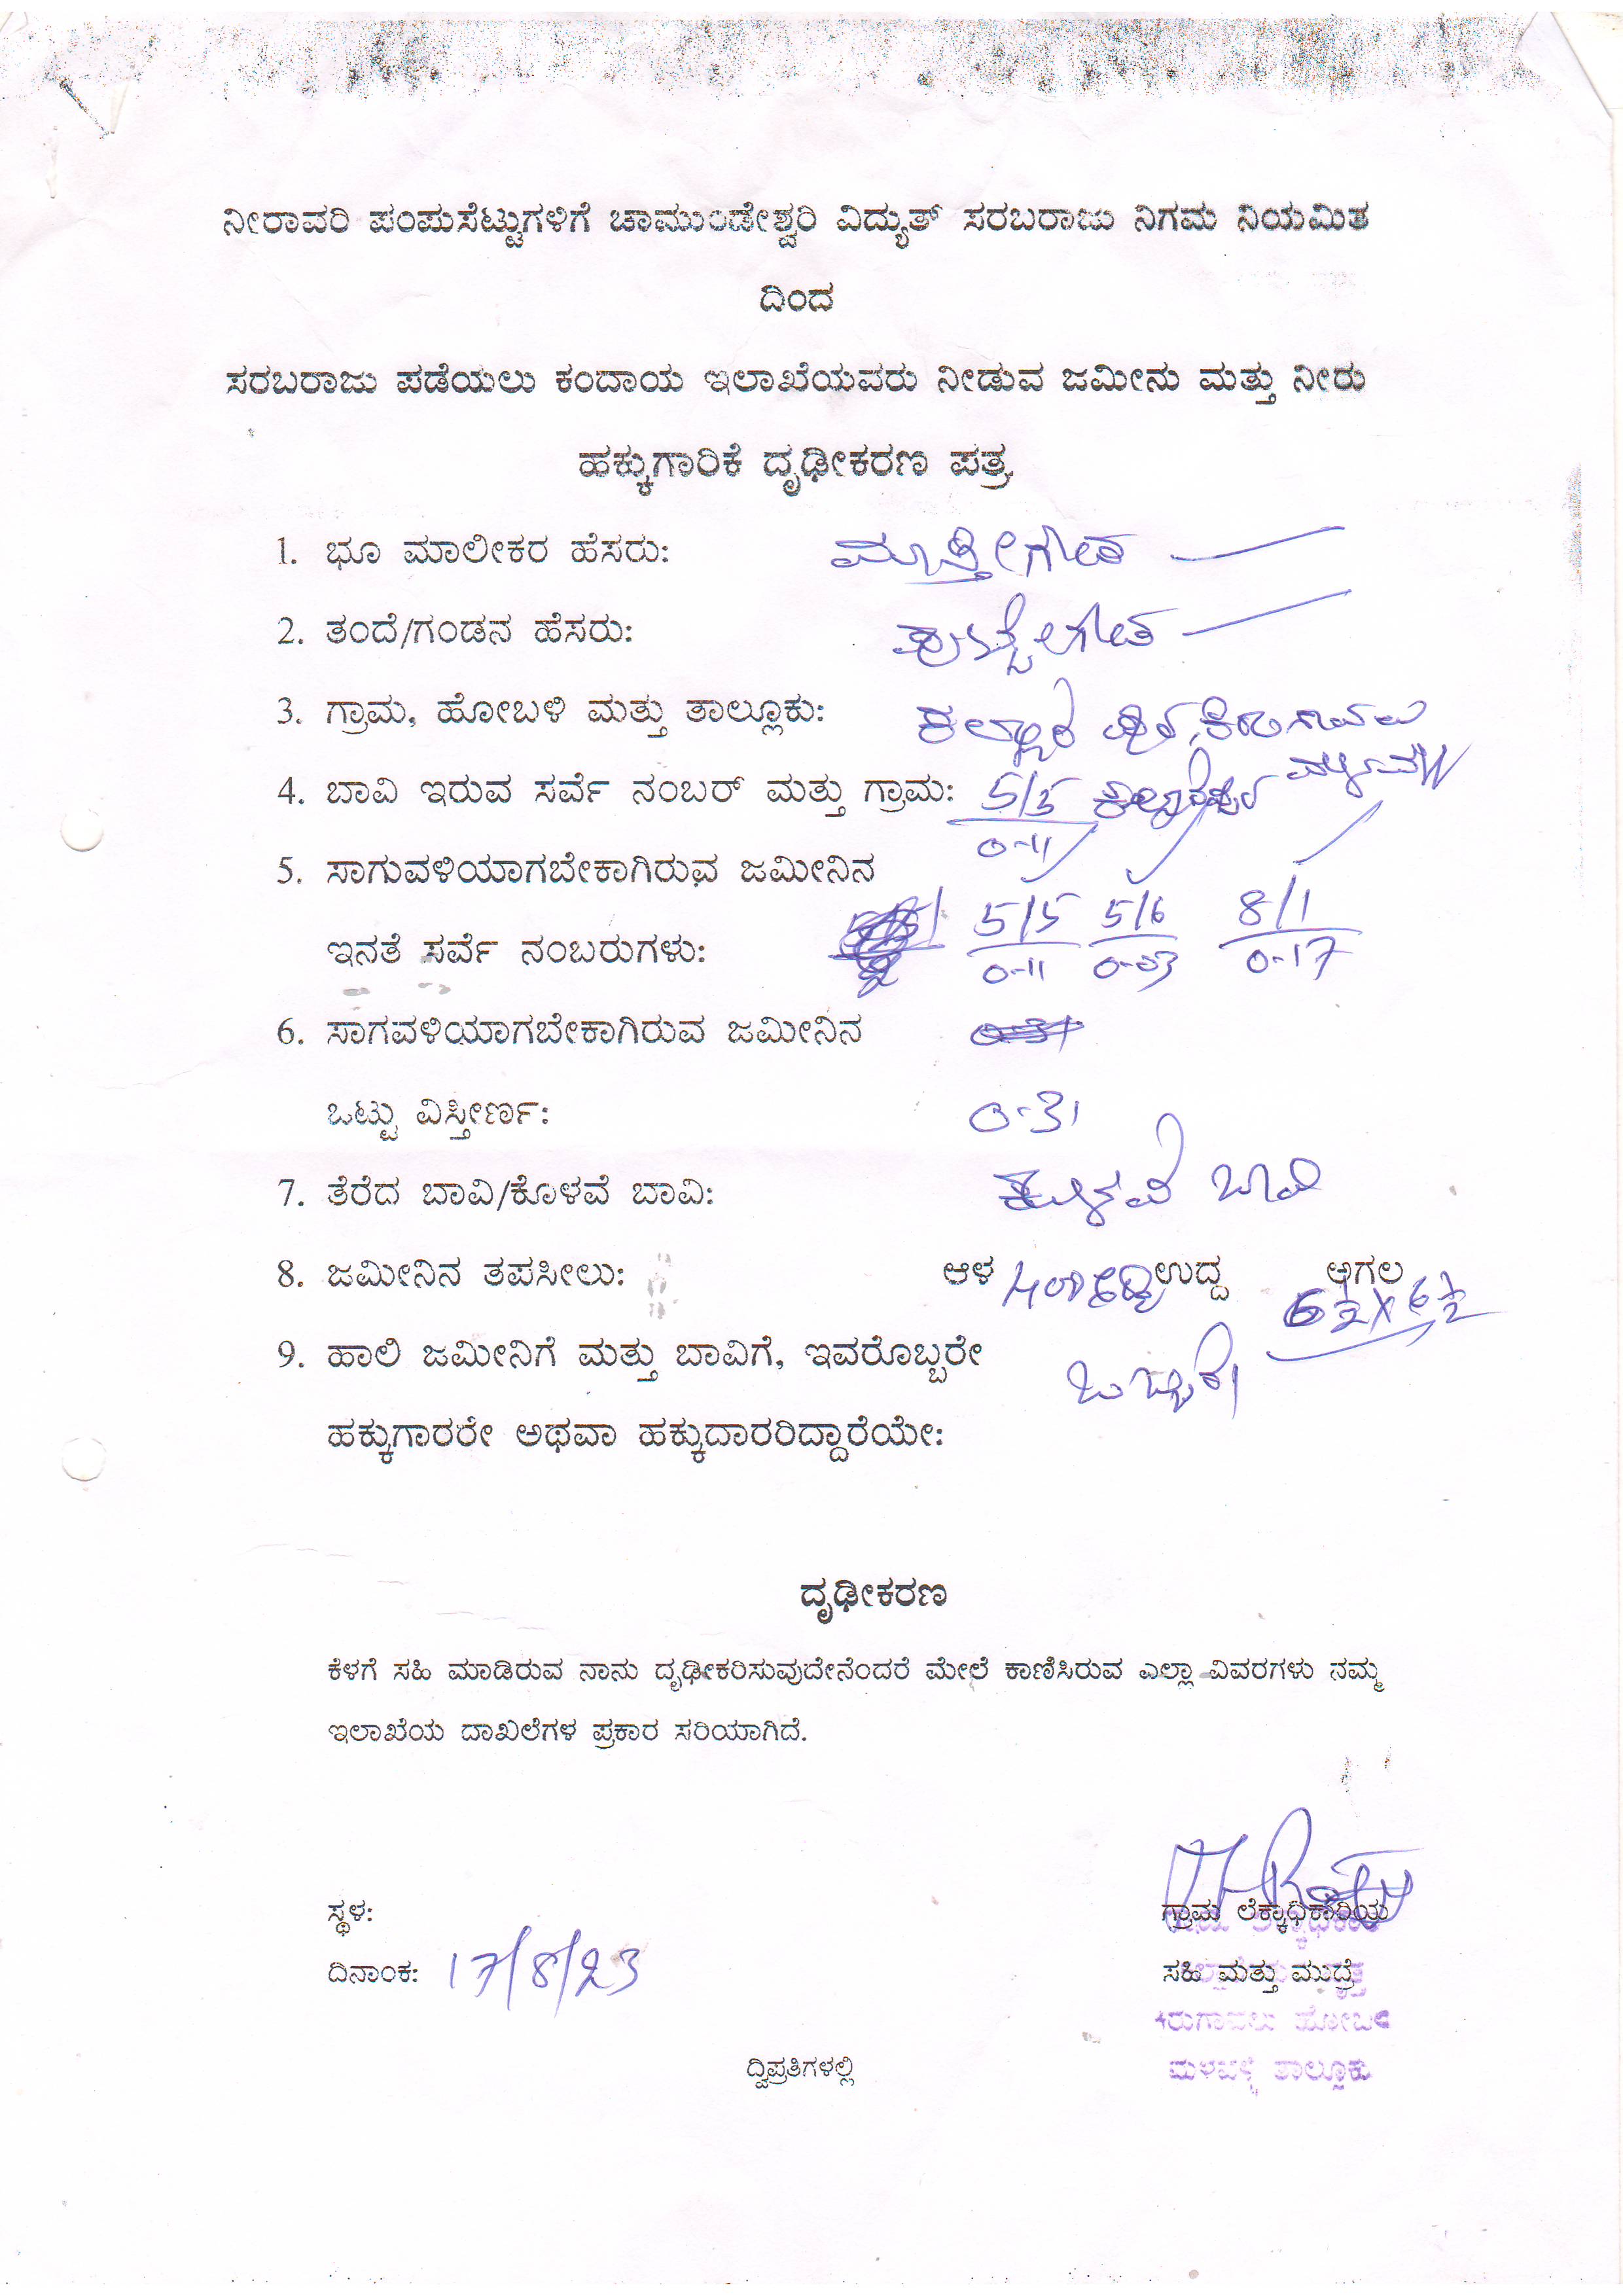 ನೀರಾವರಿ ಪಂಪುಸೆಟ್ಟುಗಳಿಗೆ ಚಾಮುಂಡೇಶ್ವರಿ ವಿದ್ಯುತ್ ಸರಬರಾಜು ನಿಗಮ ನಿಯಮಿತ
ದಿಂದ
ಸರಬರಾಜು ಪಡೆಯಲು ಕಂದಾಯ ಇಲಾಖೆಯವರು ನೀಡುವ ಜಮೀನು ಮತ್ತು ನೀರು
ಹಕ್ಕುಗಾರಿಕೆ ದೃಢೀಕರಣ ಪತ್ರ
1. ಭೂ ಮಾಲೀಕರ ಹೆಸರು:
2. ತಂದೆ/ಗಂಡನ ಹೆಸರು:
3. ಗ್ರಾಮ, ಹೋಬಳಿ ಮತ್ತು ತಾಲ್ಲೂಕು:
4. ಬಾವಿ ಇರುವ ಸರ್ವೆ ನಂಬರ್ ಮತ್ತು ಗ್ರಾಮ: 5/5
0-11
5. ಸಾಗುವಳಿಯಾಗಬೇಕಾಗಿರುವ ಜಮೀನಿನ
5/5 5/6 8/1
ಇನತೆ ಸರ್ವೆ ನಂಬರುಗಳು: 0-11 0-03 0-17
6. ಸಾಗವಳಿಯಾಗಬೇಕಾಗಿರುವ ಜಮೀನಿನ
ಒಟ್ಟು ವಿಸ್ತೀರ್ಣ: 0-31
7. ತೆರೆದ ಬಾವಿ/ಕೊಳವೆ ಬಾವಿ: ಕೊಳವೆ ಬಾವಿ
8. ಜಮೀನಿನ ತಪಸೀಲು: ಆಳ 400 ಉದ್ದ ಅಗಲ
6½ x 6½
9. ಹಾಲಿ ಜಮೀನಿಗೆ ಮತ್ತು ಬಾವಿಗೆ, ಇವರೊಬ್ಬರೇ ಒಬ್ಬರೇ
ಹಕ್ಕುಗಾರರೇ ಅಥವಾ ಹಕ್ಕುದಾರರಿದ್ದಾರೆಯೇ:
ದೃಢೀಕರಣ
ಕೆಳಗೆ ಸಹಿ ಮಾಡಿರುವ ನಾನು ದೃಢೀಕರಿಸುವುದೇನೆಂದರೆ ಮೇಲೆ ಕಾಣಿಸಿರುವ ಎಲ್ಲಾ ವಿವರಗಳು ನಮ್ಮ
ಇಲಾಖೆಯ ದಾಖಲೆಗಳ ಪ್ರಕಾರ ಸರಿಯಾಗಿದೆ.
ಸ್ಥಳ: ಗ್ರಾಮ ಲೆಕ್ಕಾಧಿಕಾರಿಯ
ದಿನಾಂಕ: 17/8/23 ಸಹಿ ಮತ್ತು ಮುದ್ರೆ
ದ್ವಿಪ್ರತಿಗಳಲ್ಲಿ ಮಳವಳ್ಳಿ ತಾಲ್ಲೂಕು